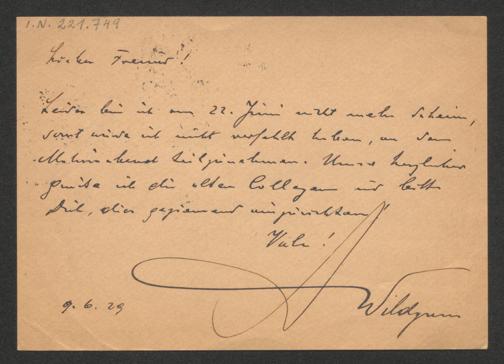 I.N. 221.749
Lieber Freund!
Leider bin ich am 22. Juni nicht mehr daheim,
sonst würde ich nicht verfehlt haben, an dem
Maturaabend teilzunehmen. Umso herzlicher
grüße ich die alten Collegen und bitte
Dich, dies geziemend auszurichten
Vale!
Wildgans
9. 6. 29